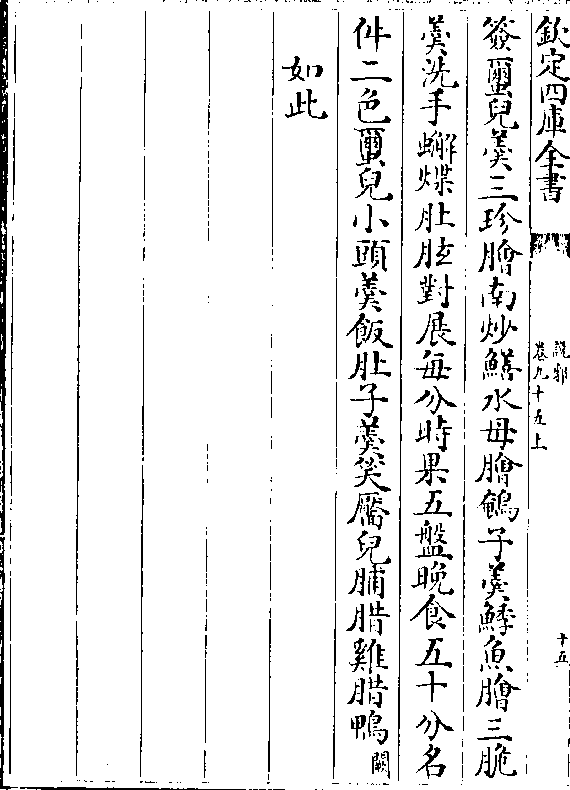 欽定四庫全書
說郛
卷九十五上
十五
簽䘈兒羹三珍膾南炒鱔水母膾鵪子羹䱉魚膾三脆
羹洗手蠏煠肚胘對展每分時果五盤晚食五十分名
件二色䘈兒小頭羹飯肚子羹笑靨兒脯腊雞腊鴨闕
如此